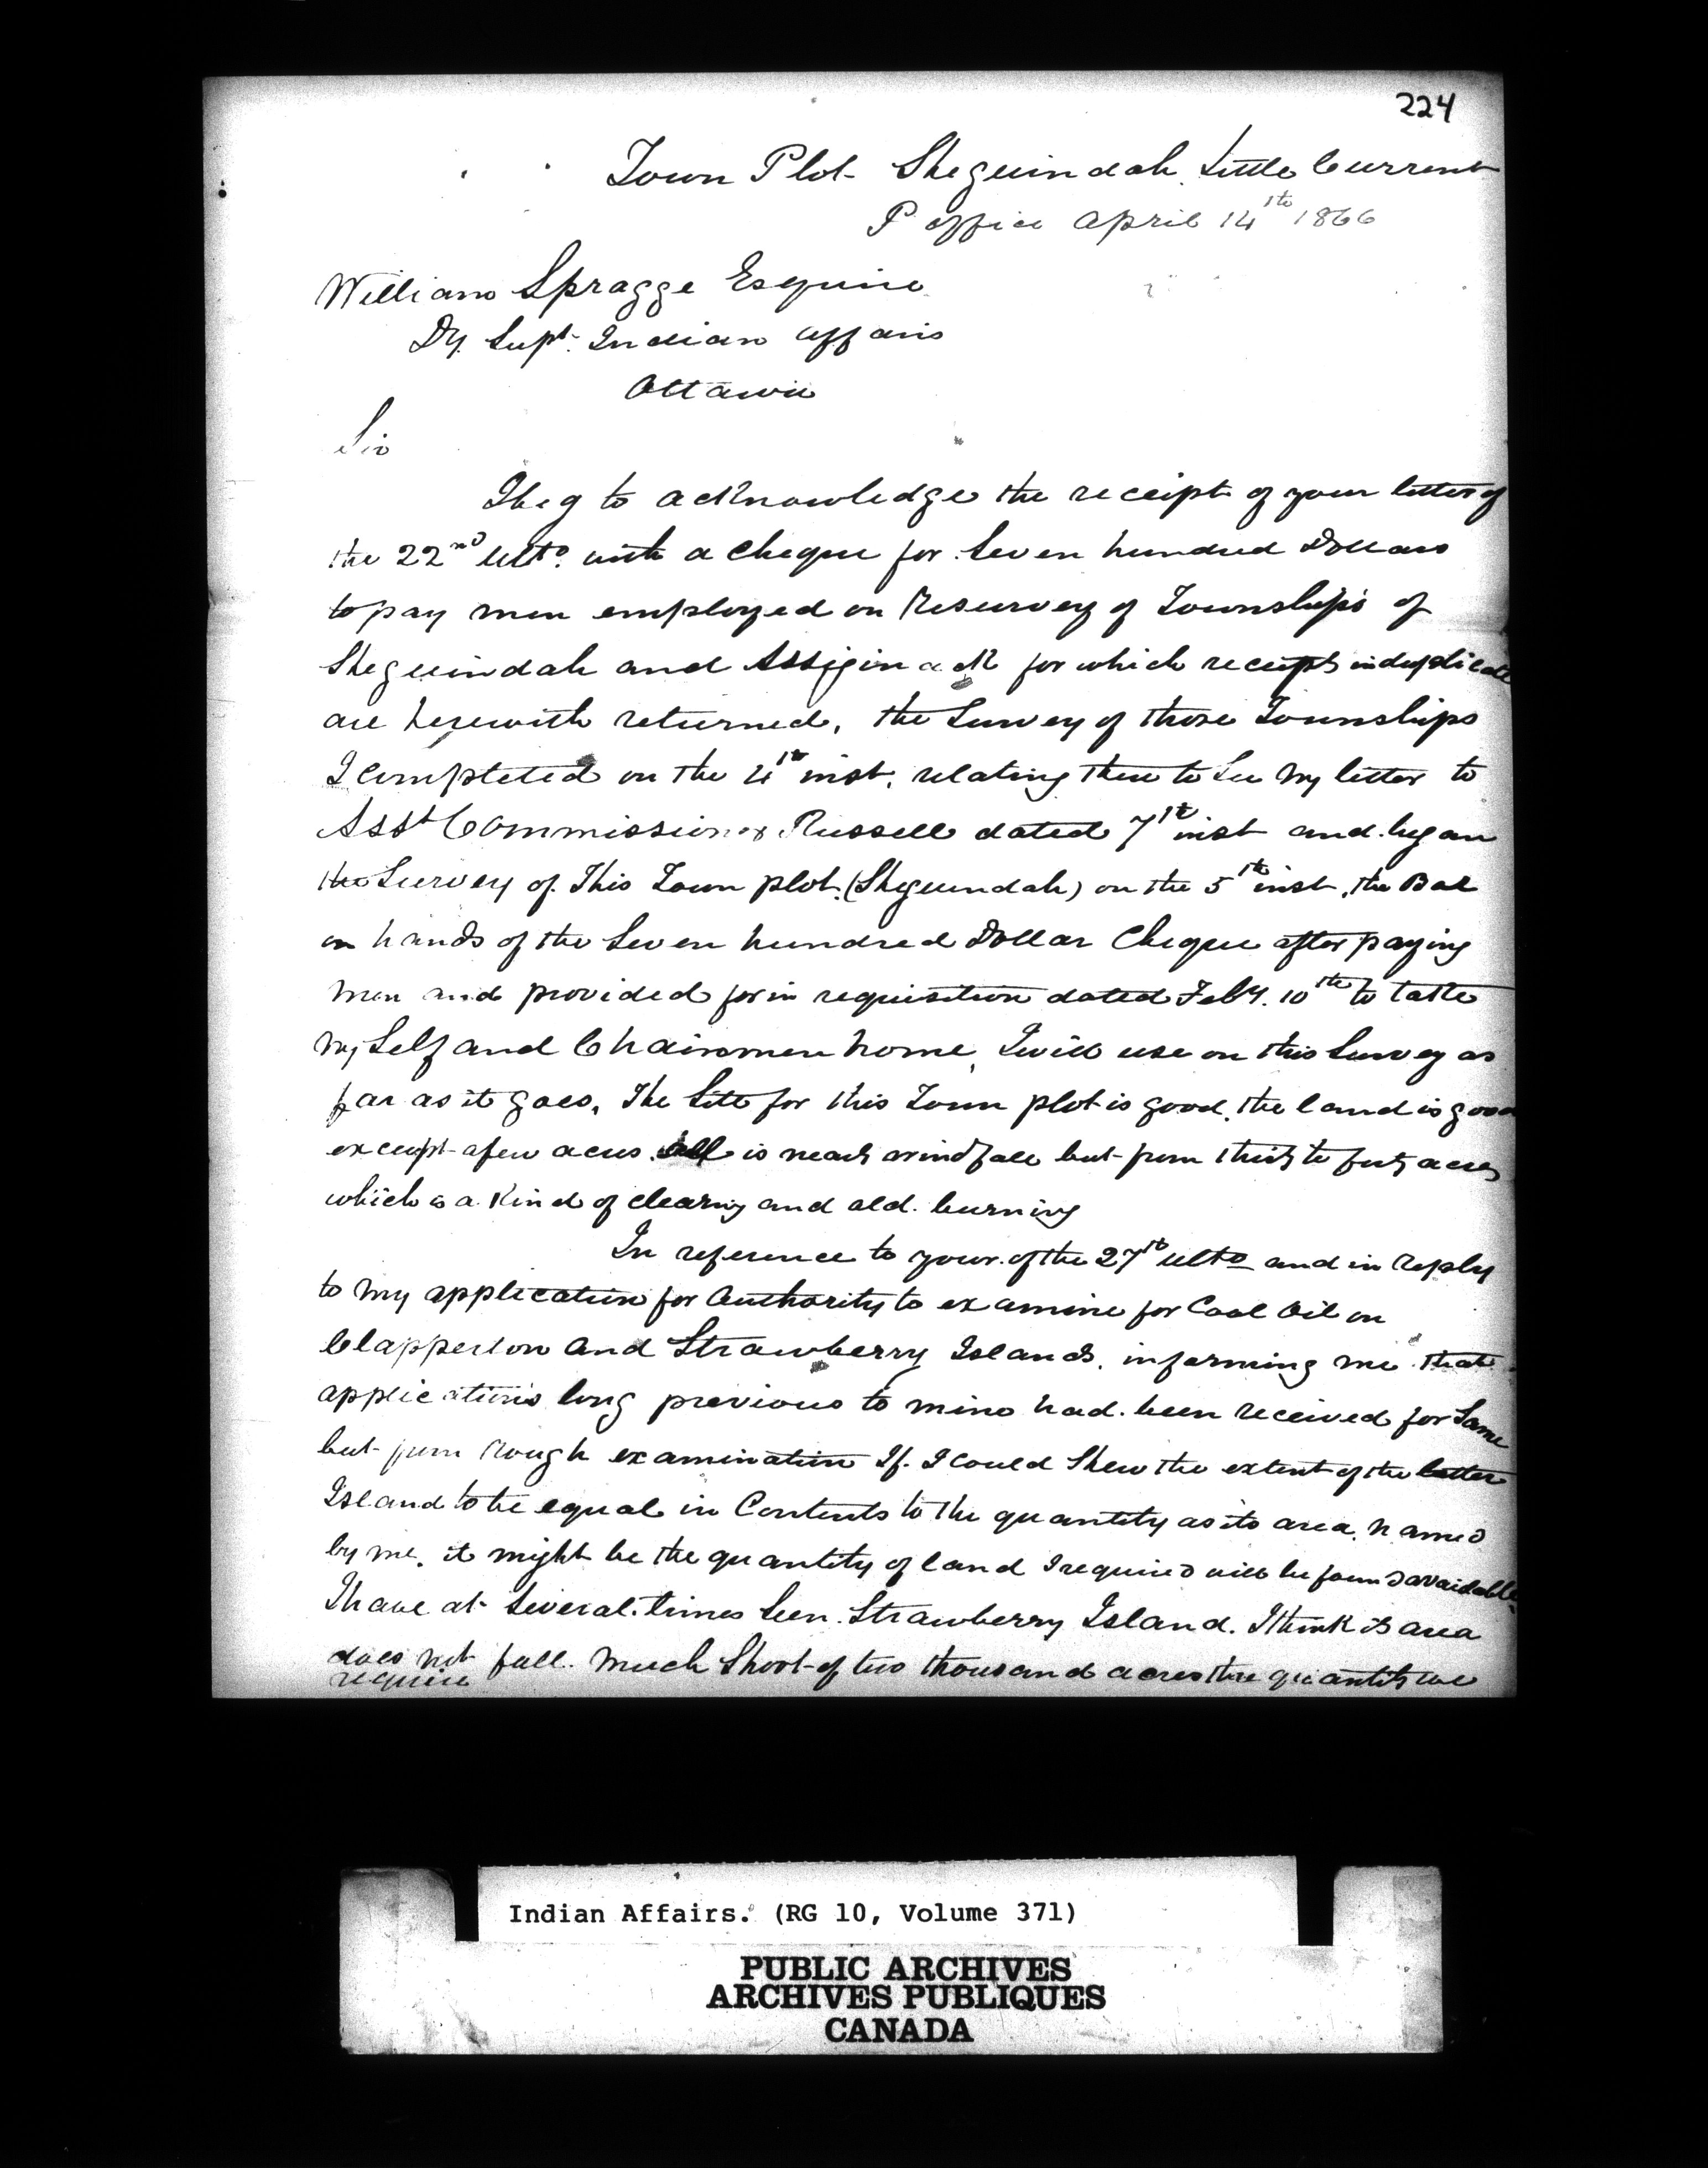 224
Town Plot Sheguindah Little Current
P office April 14th 1866
William Spragge Esquire
Dy. Supt. Indian Affairs
Ottawa
Sir
I beg to acknowledge the receipt of your letter of
the 22nd ulto. with a cheque for Seven hundred Dollars
to pay men employed on Resurvey of Townships of
Sheguindah and Assiginack for which receipts in duplicate
are herewith returned, the Survey of those Townships
I completed on the 4th inst, relating there to See my letter to
Asst Commissioner Russell dated 7th inst and began
the Survey of This Town plot (Sheguindah) on the 5th inst, the Bal
on hands of the Seven hundred Dollar Cheque after paying
men and provided for in requisition dated Feby. 10th to take
my Self and Chainmen home, I will use on this Survey as
far as it goes, The Site for this Town plot is good, the land is good
except a few acres. all is nearly windfall but from thirty to forty acres
which is a Kind of clearing and old burning
In reference to your of the 27th ulto and in reply
to my application for Authority to examine for Coal Oil on
Clapperton and Strawberry Islands, informing me that
applications long previous to mine had been received for Same
but from rough examination If I could Shew the extent of the latter
Island to be equal in Contents to the quantity as its area, named
by me, it might be the quantity of land I required will be found available
I have at Several times Seen Strawberry Island. I think its area
does not fall much Short of two thousand acres the quantity we
require
Indian Affairs. (RG 10, Volume 371)
PUBLIC ARCHIVES
ARCHIVES PUBLIQUES
CANADA